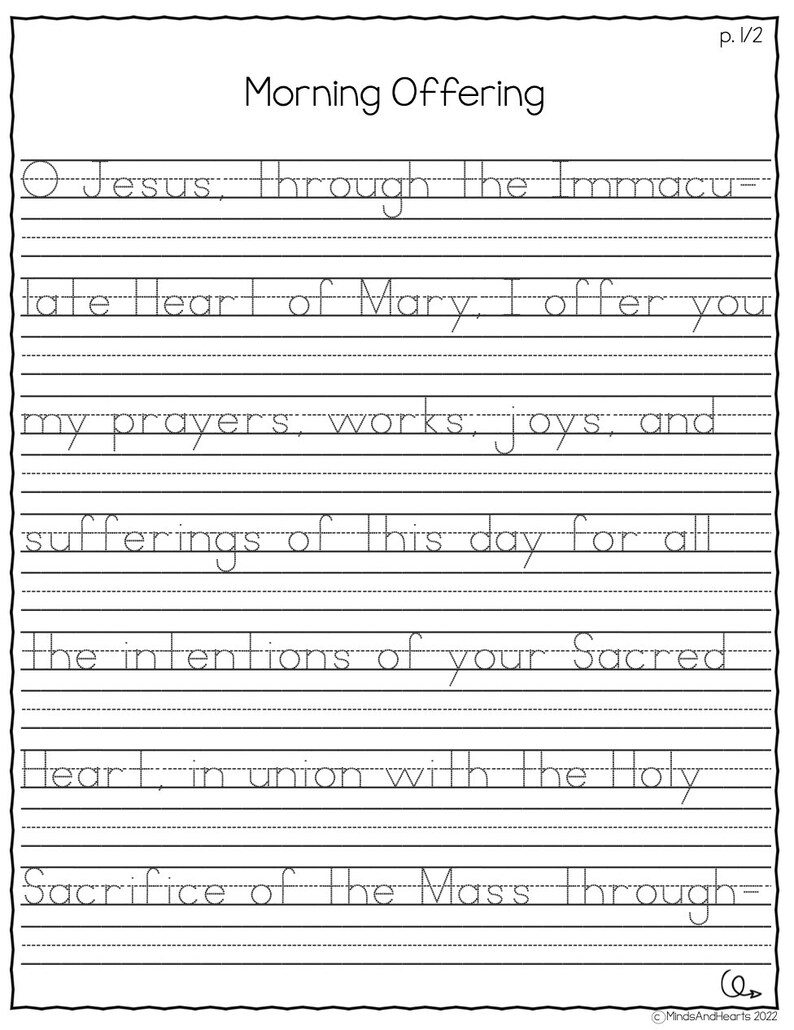 p. 1/2
Morning Offering
O Jesus, through the Immacu-
late Heart of Mary, I offer you
my prayers, works, joys, and
sufferings of this day for all
the intentions of your Sacred
Heart, in union with the Holy
Sacrifice of the Mass through-
©MindsAndHearts 2022